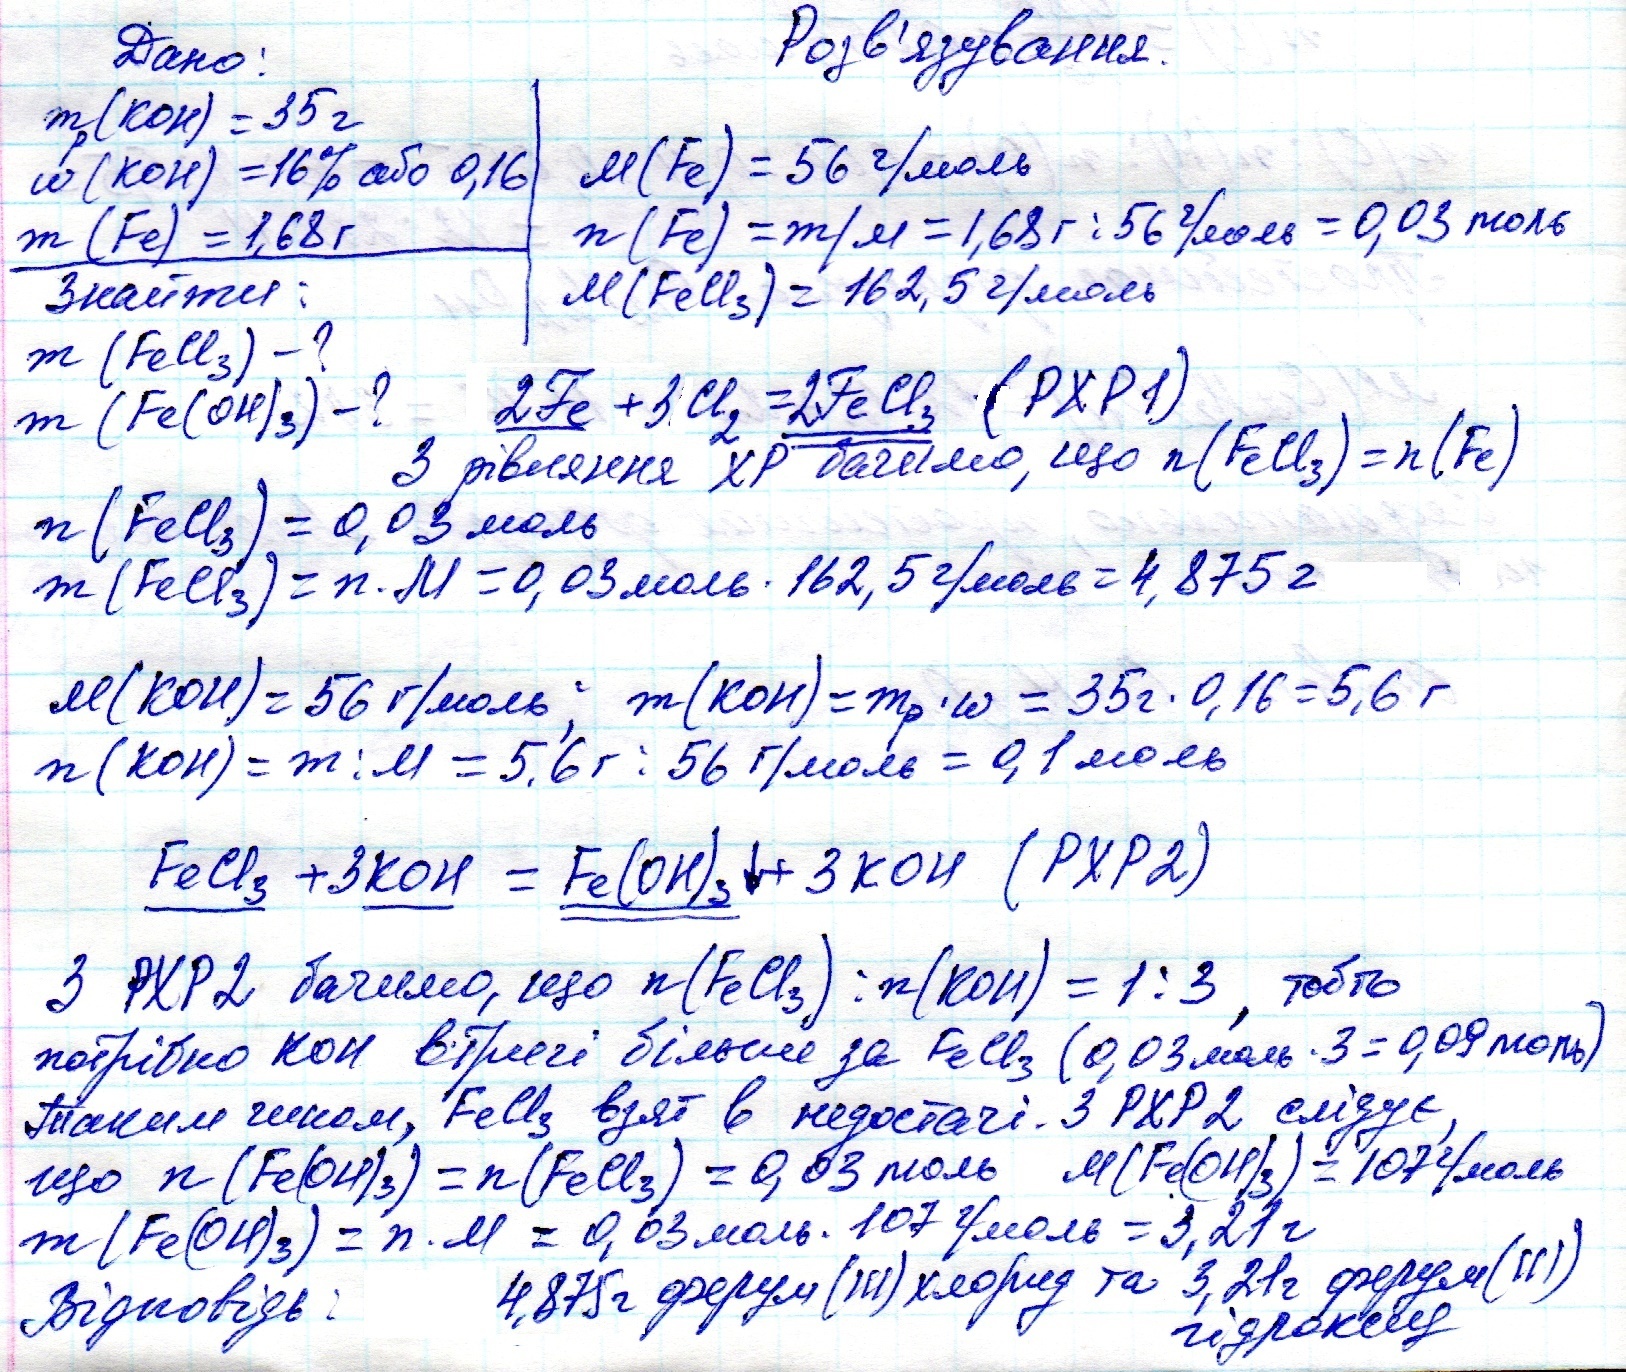 Дано:
m р(KOH) = 35 г
w(KOH) = 16% або 0,16
m(Fe) = 1,68 г
Знайти:
m(FeCl₃) – ?
m(Fe(OH)₃) – ?
Розв'язування.
M(Fe) = 56 г/моль
n(Fe) = m/M = 1,68 г : 56 г/моль = 0,03 моль
M(FeCl₃) = 162,5 г/моль
2Fe + 3Cl₂ = 2FeCl₃ (РХР1)
З рівняння ХР бачимо, що n(FeCl₃) = n(Fe)
n(FeCl₃) = 0,03 моль
m(FeCl₃) = n · M = 0,03 моль · 162,5 г/моль = 4,875 г
M(KOH) = 56 г/моль; m(KOH) = mр · w = 35 г · 0,16 = 5,6 г
n(KOH) = m : M = 5,6 г : 56 г/моль = 0,1 моль
FeCl₃ + 3KOH = Fe(OH)₃↓ + 3KOH (РХР2)
З РХР2 бачимо, що n(FeCl₃) : n(KOH) = 1 : 3, тобто
потрібно KOH втричі більше за FeCl₃ (0,03 моль · 3 = 0,09 моль)
Таким чином, FeCl₃ взят в недостачі. З РХР2 слідує,
що n(Fe(OH)₃) = n(FeCl₃) = 0,03 моль M(Fe(OH)₃) = 107 г/моль
m(Fe(OH)₃) = n · M = 0,03 моль · 107 г/моль = 3,21 г
Відповідь: 4,875 г ферум(III) хлорид та 3,21 г ферум(III)
гідроксид